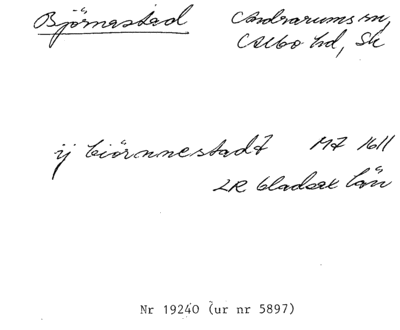 Björnastad Andrarums sn,
Albo hd, Sk
ij biörnnestadt MJ 1611
LR bladsk län
Nr 19240 (ur nr 5897)